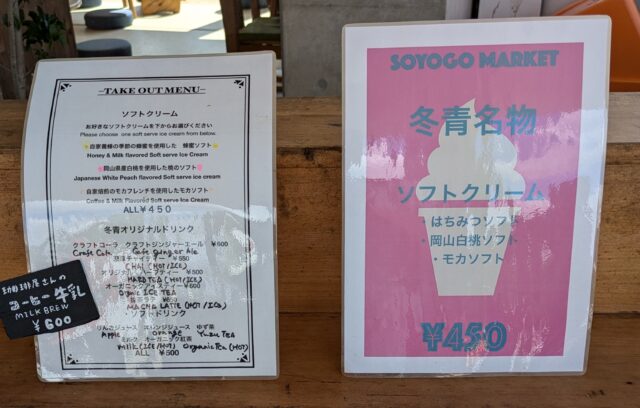 -TAKE OUT MENU-
ソフトクリーム
お好きなソフトクリームを下からお選びください
Please choose one soft serve ice cream from below.
自家養蜂の季節の蜂蜜を使用した 蜂蜜ソフト
Honey & Milk flavored Soft serve Ice Cream
岡山県産白桃を使用した桃のソフト
Japanese White Peach flavored Soft serve Ice Cream
自家焙煎のモカフレンチを使用したモカソフト
Coffee & Milk Flavored Soft serve Ice Cream
ALL¥450
冬青オリジナルドリンク
クラフトコーラ クラフトジンジャーエール ¥600
Craft Cola Cafe ginger Ale
チャイティー ¥550
CHAI (HOT/ICE)
オリジナル ティー ¥500
HARB TEA (HOT/ICE)
オーガニックアイスティー ¥600
Organic ICE TEA
抹茶ラテ ¥650
MACHA LATTE (HOT/ICE)
ソフトドリンク
りんごジュース オレンジジュース ゆず茶
Apple orange Yuzu TEA
ミルク オーガニック紅茶
Milk (ICE/HOT) Organic TEA (HOT)
ALL ¥500
珈琲屋さんの
コーヒー牛乳
MILK BREW
¥600
SOYOGO MARKET
冬青名物
ソフトクリーム
・はちみつソフト
・岡山白桃ソフト
・モカソフト
¥450